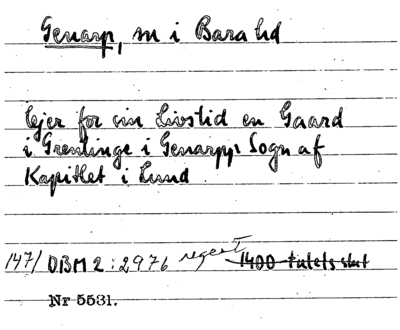 Genarp, m i Bara hd
lejer for sin Livstid en Gaard
i Grentinge i Genarps Sogn af
Kapitlet i Lund
147/ DBM 2:2976 regest 1400 tallets slut
Nr 5531.